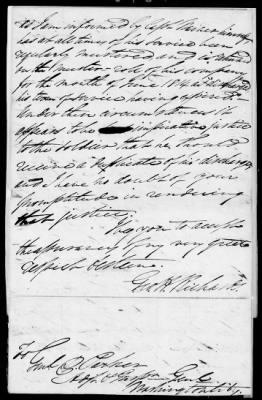 as I am informed by Capt.
has at all times of his service been
regularly mustered and is returned
on the muster-roll of his company
for the month of June 1814 as discharged
his term of service having expired.
Under these circumstances it
appears to be justice
to the soldier that he should
receive a duplicate of his discharge,
and I have no doubt of your
promptitude in rendering
that justice.
I beg you to accept
the assurances of my very great
respect & esteem.
Geo. H. Richards
To
Genl. D. Parker
Adjt. & Inspr. Genl.
Washington City.